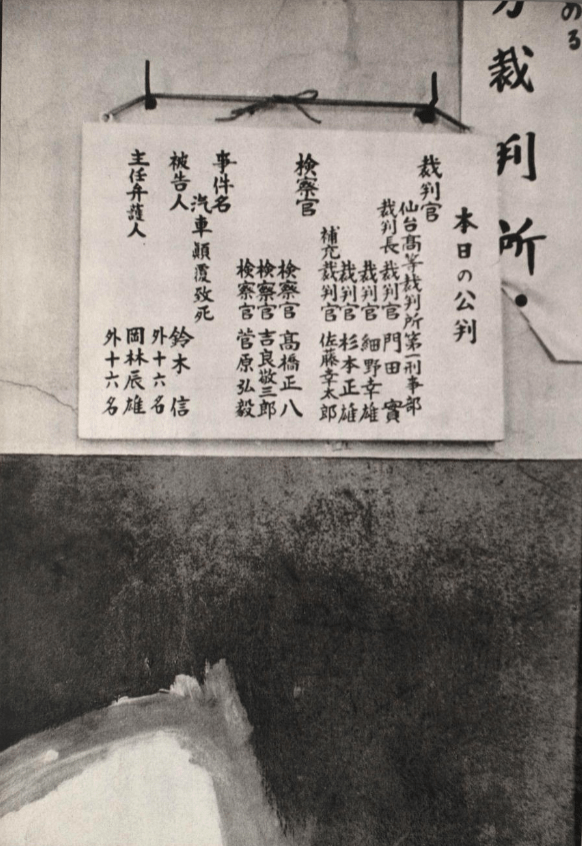 のる
裁判所
本日の公判
裁判官
仙台高等裁判所第一刑事部
裁判長 裁判官 門田實
裁判官 細野幸雄
裁判官 杉本正雄
補充裁判官 佐藤幸太郎
検察官
検察官 髙橋正八
検察官 吉良敬三郎
検察官 菅原弘毅
事件名
汽車顚覆致死
被告人
鈴木信
外十六名
主任弁護人
岡林辰雄
外十六名